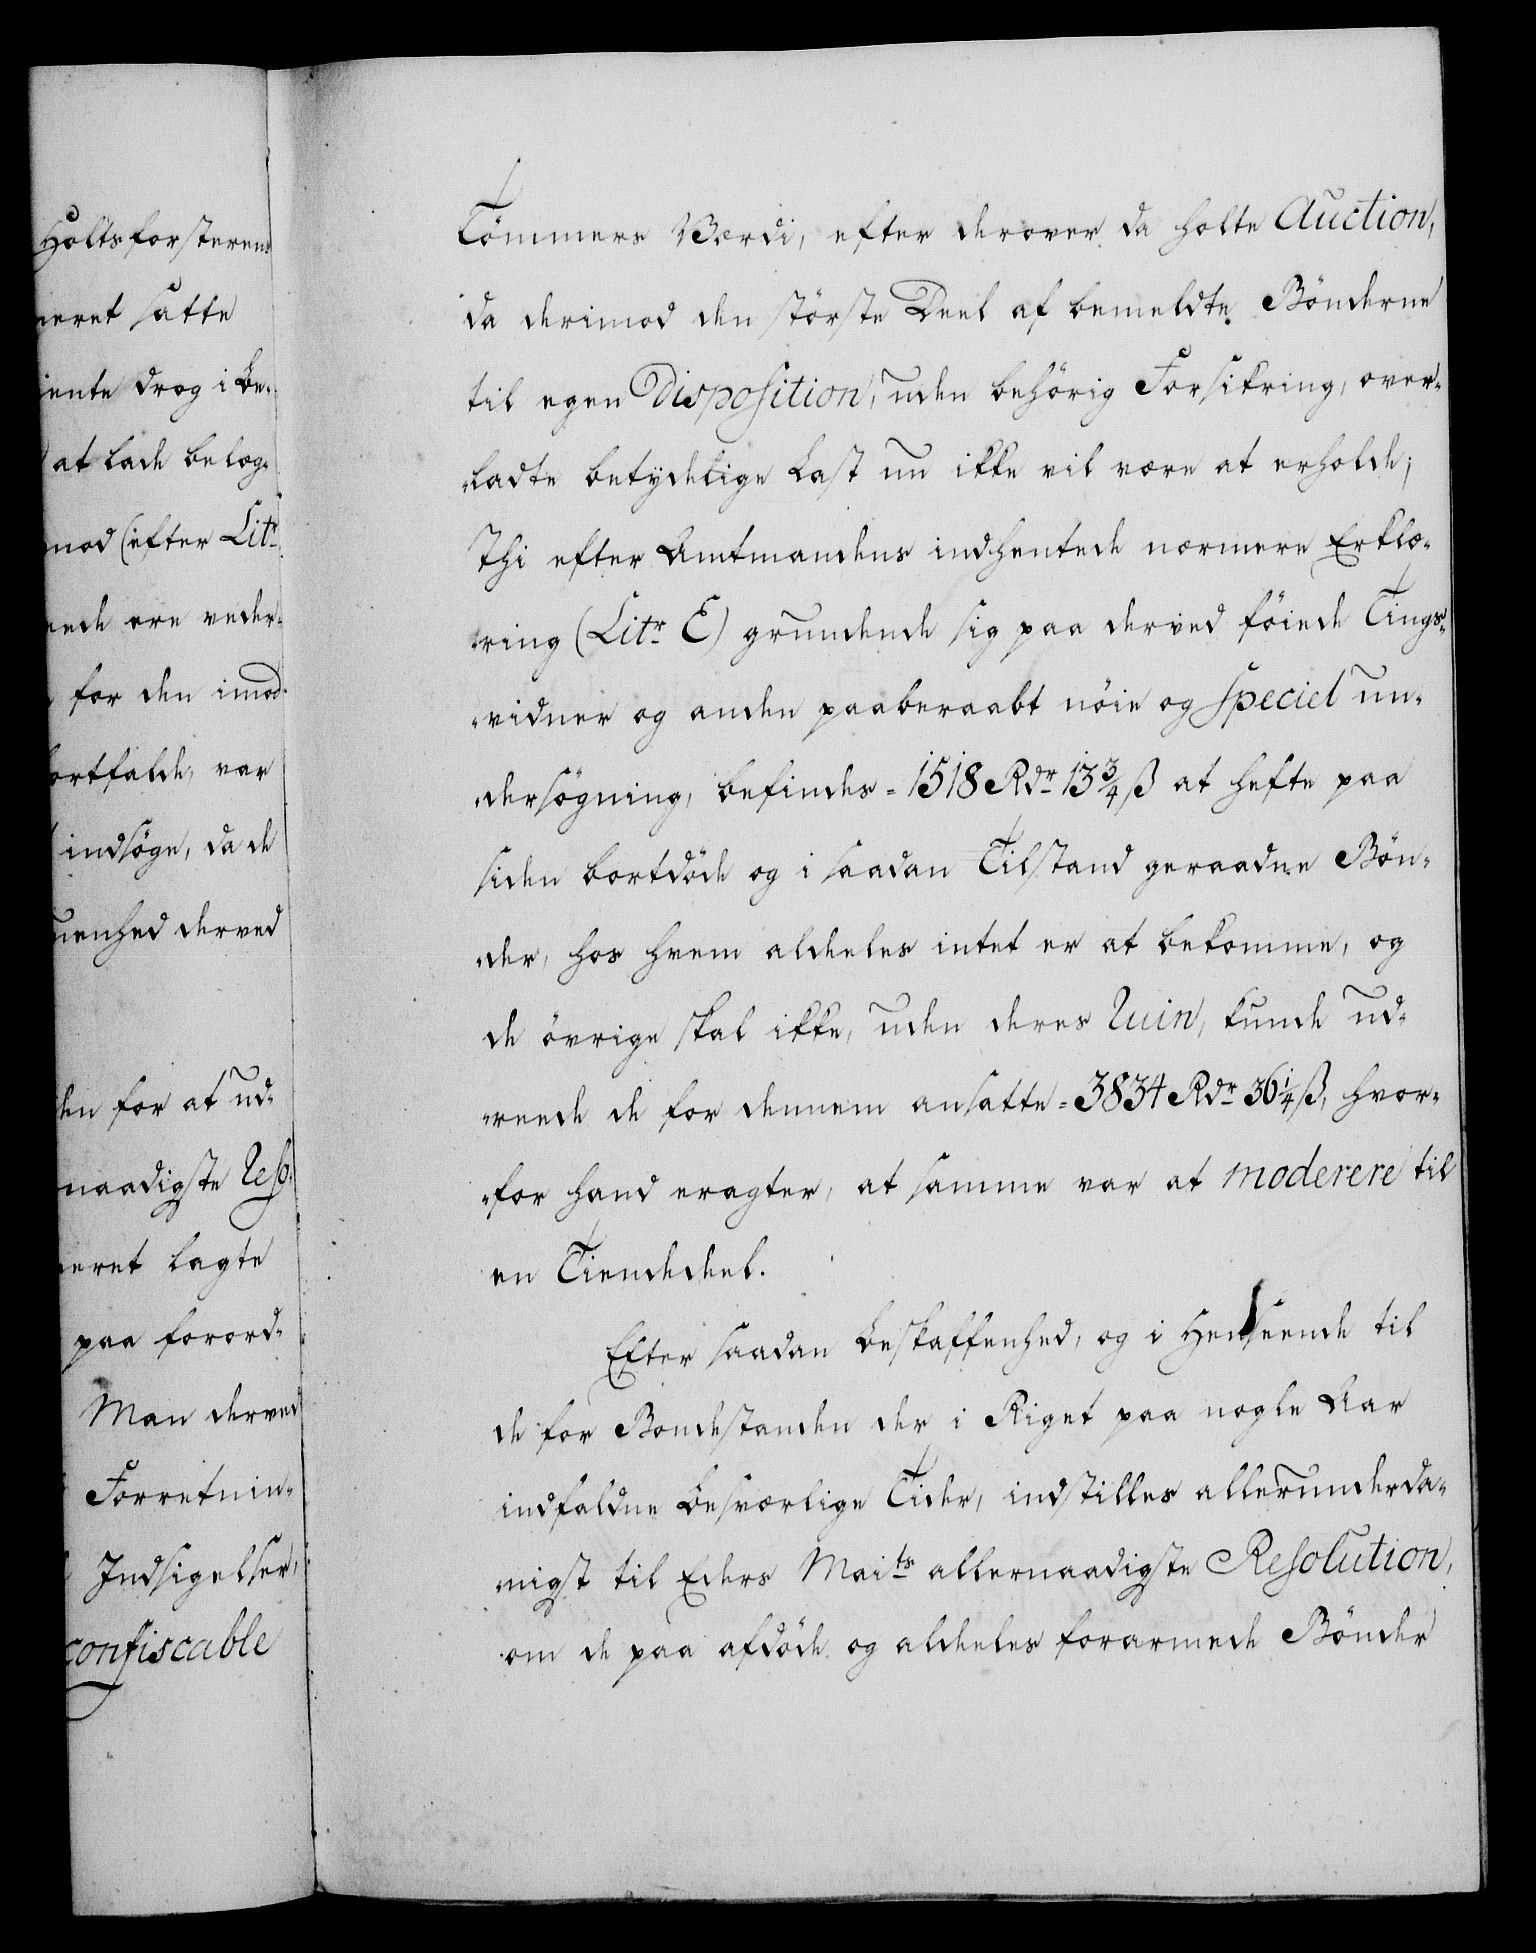 Holtsforsterens
neret satte
iente drog i Be-
at lade belæg-
mod (efter Litr
nede ere veder-
for den imod
ortfalde, var
indsöge, da de
uenhed derved
den for at ud-
naadigste Reso-
neret lagte
paa forord-
Man derved
Forretnin-
Indsigelser,
confiscable
Tömmers Værdi, efter derover da holte Auction,
da derimod den störste Deel af bemeldte Bönderne
til egen Disposition, uden behörig Forsikring, over-
-ladte betydelige Last nu ikke vil være at erholde;
Thi efter Amtmandens indhentede nærmere Erklæ-
-ring (Litr E) grundende sig paa derved föiede Tings-
-vidner og anden paaberaabt nöie og speciel un-
-dersögning, befindes = 1518 Rdr 13 3/4 ß at hefte paa
siden bortdöde og i saadan Tilstand geraadne Bön-
-der, hos hvem aldeeles intet er at bekomme, og
de övrige skal ikke, uden deres Ruin, kunde ud-
-reede de for dennem ansatte = 3834 Rdr 36 1/4 ß, hvor-
-for hand eragter, at samme var at moderere til
en Tiendedeel.
Efter saadan Beskaffenhed, og i Henseende til
de for Bondestanden der i Riget paa nogle Aar
indfaldne besværlige Tider, indstilles allerunderda-
-nigst til Eders Maits allernaadigste Resolution,
om de paa afdöde og aldeeles forarmede Bönder